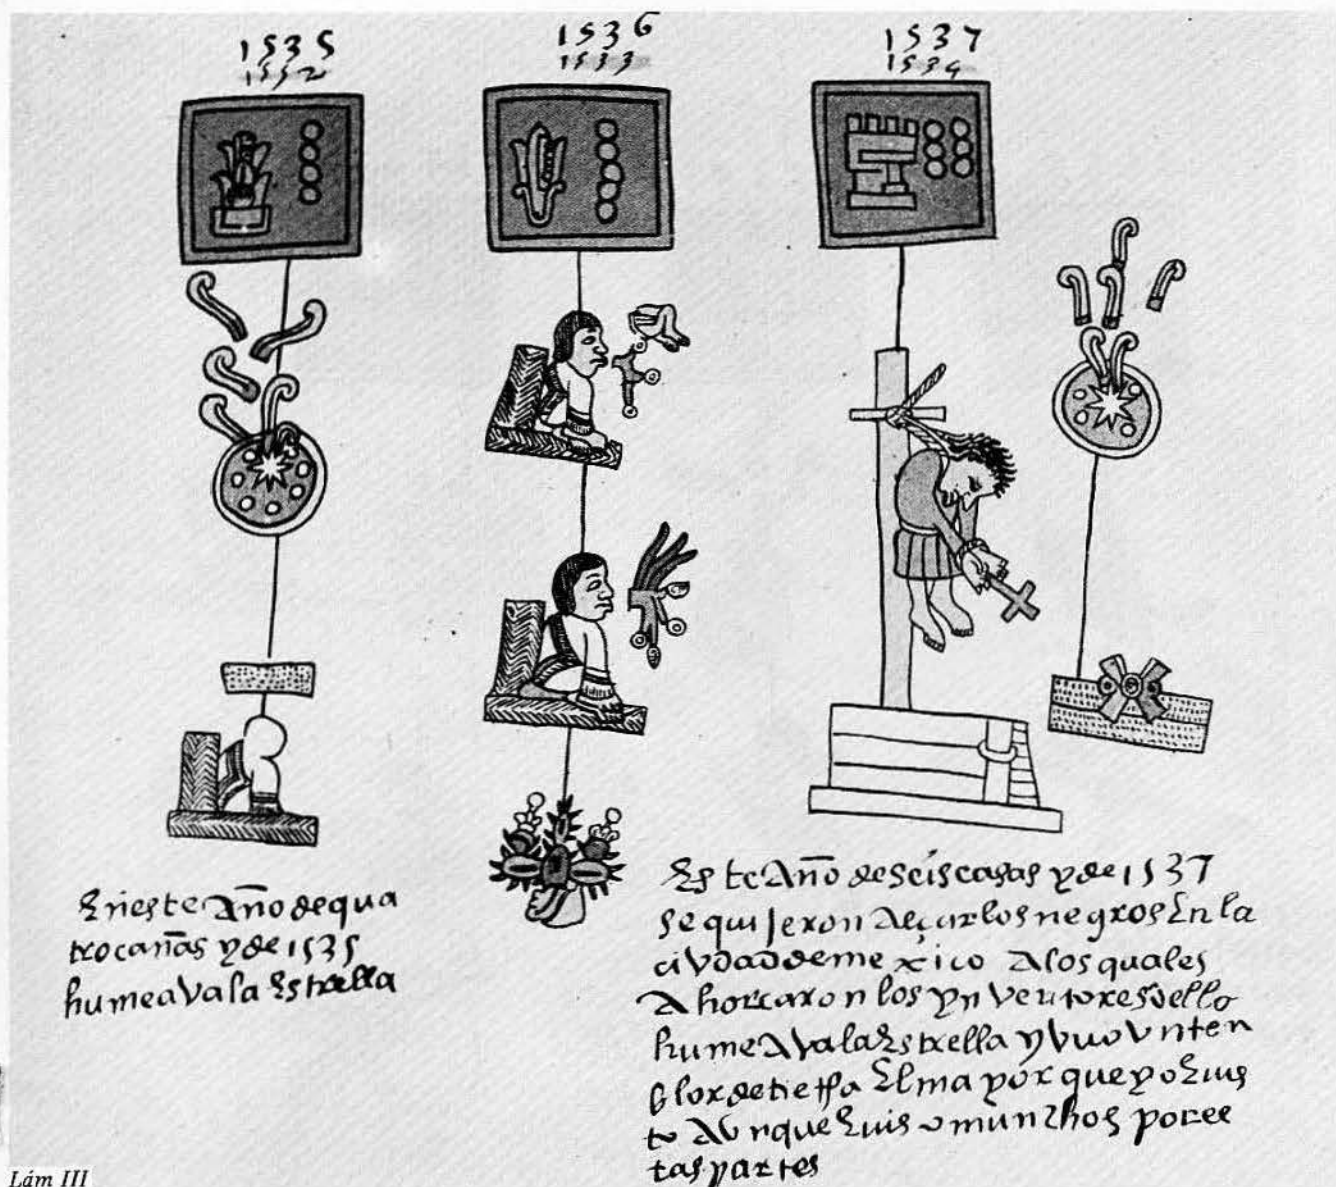 1535
1532
1536
1533
1537
1534
Eneste Año de qua
tro cañas y de 1535
humeava la Estrella
Este Año de seis casas y de 1537
se quisieron Alçar los negros En la
civdad de mexico A los quales
Ahorcaron los ynventores dello
humeava la Estrella y vuo vn ten
blor de tierra El mayor que yo E uis
to Avnque E uisto munchos por es
tas partes
Lám III